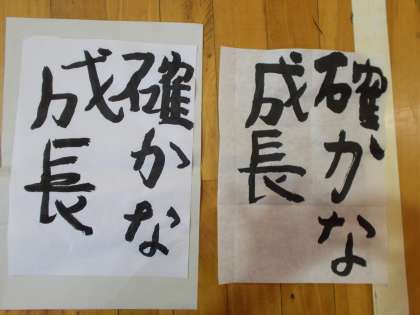 確かな
成長
確かな
成長